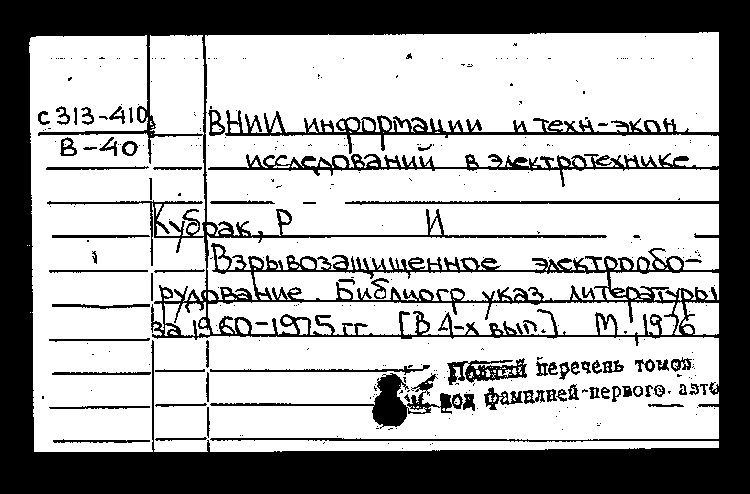 с 313-410
В-40
ВНИИ информации и техн-экон.
исследований в электротехнике.
Кубрак, Р И
Взрывозащищенное электрообо-
рудование. Библиогр указ. литературы
за 1960-1975 гг. [В 4-х вып.]. М., 1976
Полный перечень томов
см. под фамилией первого авто